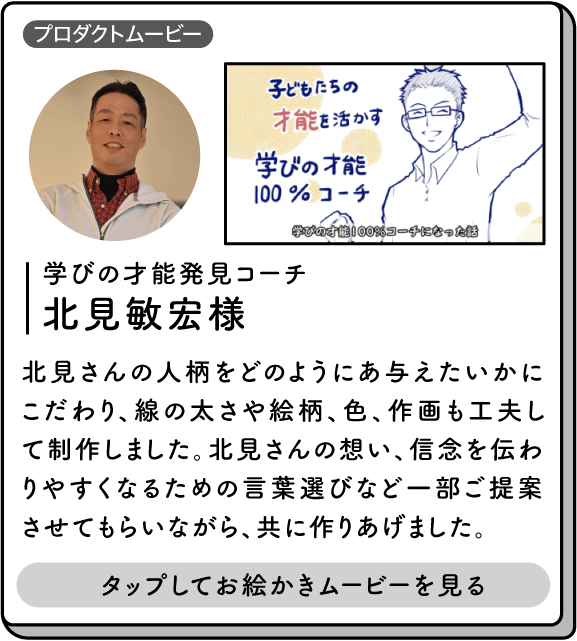 プロダクトムービー
子どもたちの
才能を活かす
学びの才能
100%コーチ
学びの才能100%コーチになった話
学びの才能発見コーチ
北見敏宏様
北見さんの人柄をどのようにあ与えたいかに
こだわり、線の太さや絵柄、色、作画も工夫し
て制作しました。北見さんの想い、信念を伝わ
りやすくなるための言葉選びなど一部ご提案
させてもらいながら、共に作りあげました。
タップしてお絵かきムービーを見る